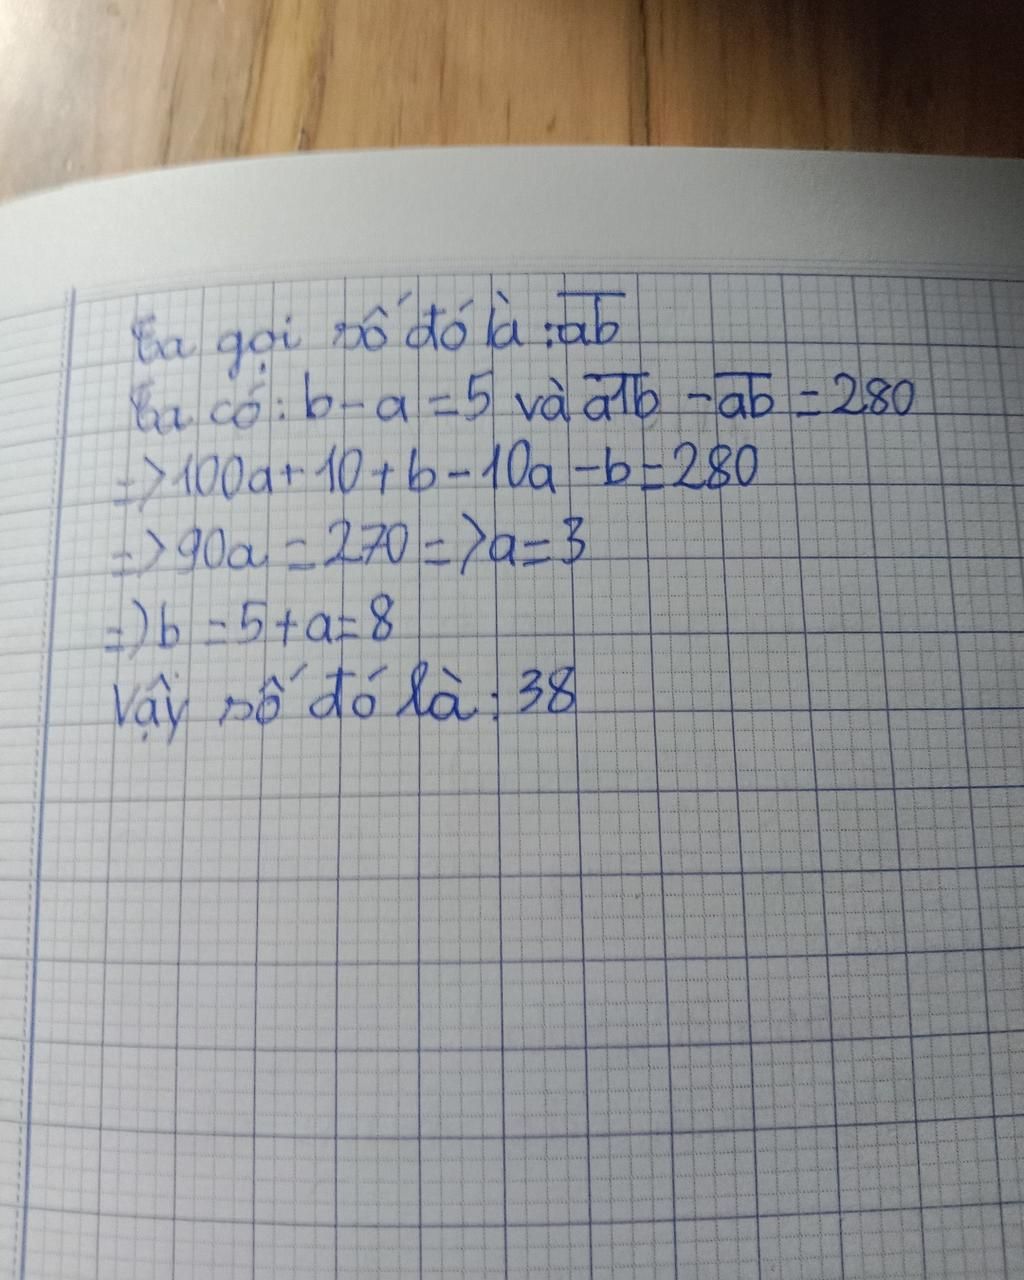 Ta gọi số đó là : a̅b̅
Ta có : b - a = 5 và a̅1̅b̅ - a̅b̅ = 280
=> 100a + 10 + b - 10a - b = 280
=> 90a = 270 => a = 3
=> b = 5 + a = 8
Vậy số đó là : 38